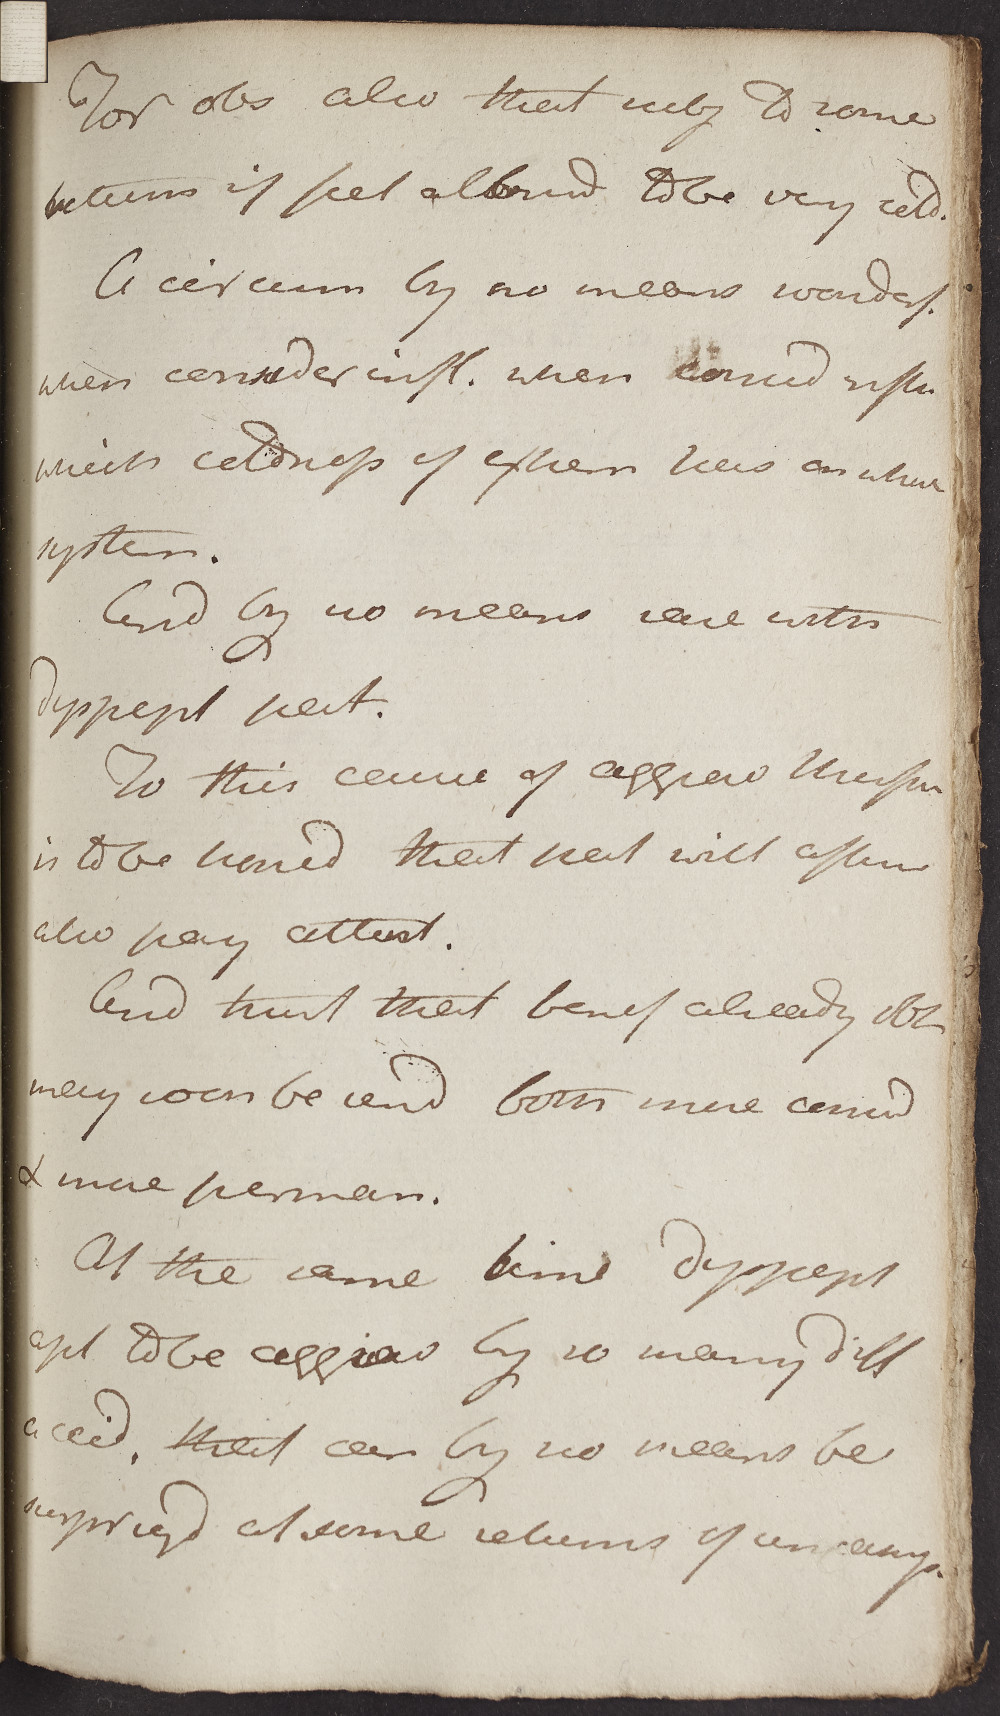 For obs also that subj to some
returns if feet allowed to be very cold.
A circum by no means wonderf.
when consider infl. when consid
which coldness of extrem has on whole
system.
And by no means rare with
dyspept pat.
To this cause of aggrav therefore
is to be hoped that pat will often
also pay attent.
And trust that benef already obt
may soon be rend both more consid
& more perman.
At the same time dyspept
apt to be aggrav by so many diff
accid. that can by no means be
surprized at some returns of uneasy.